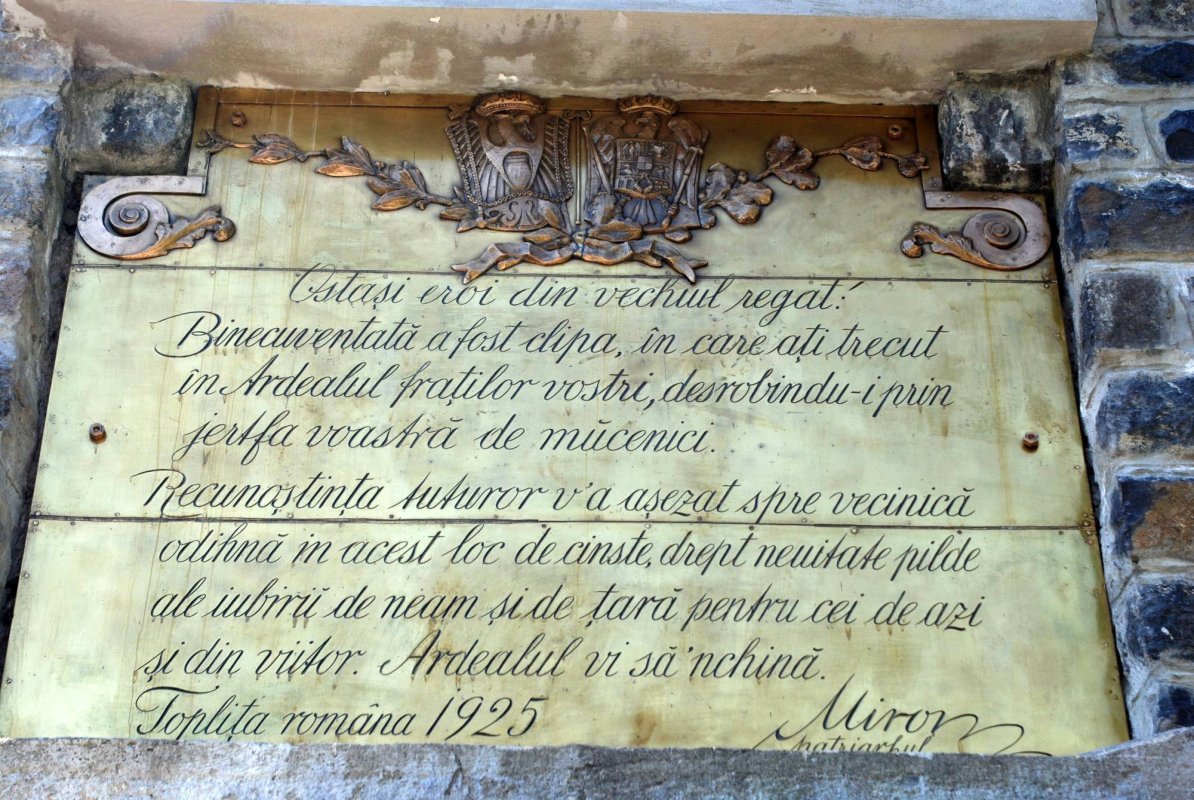 Ostași eroi din vechiul regat!
Binecuventată a fost clipa, în care ați trecut
în Ardealul fraților vostri, desrobindu-i prin
jertfa voastră de mŭcenici.
Recunoștința tuturor v'a așezat spre vecinică
odihnă in acest loc de cinste, drept neuitate pilde
ale iubirii de neam și de țară pentru cei de azi
și din viitor. Ardealul vi să'nchină.
Toplița româna 1925
Miron
patriarhul